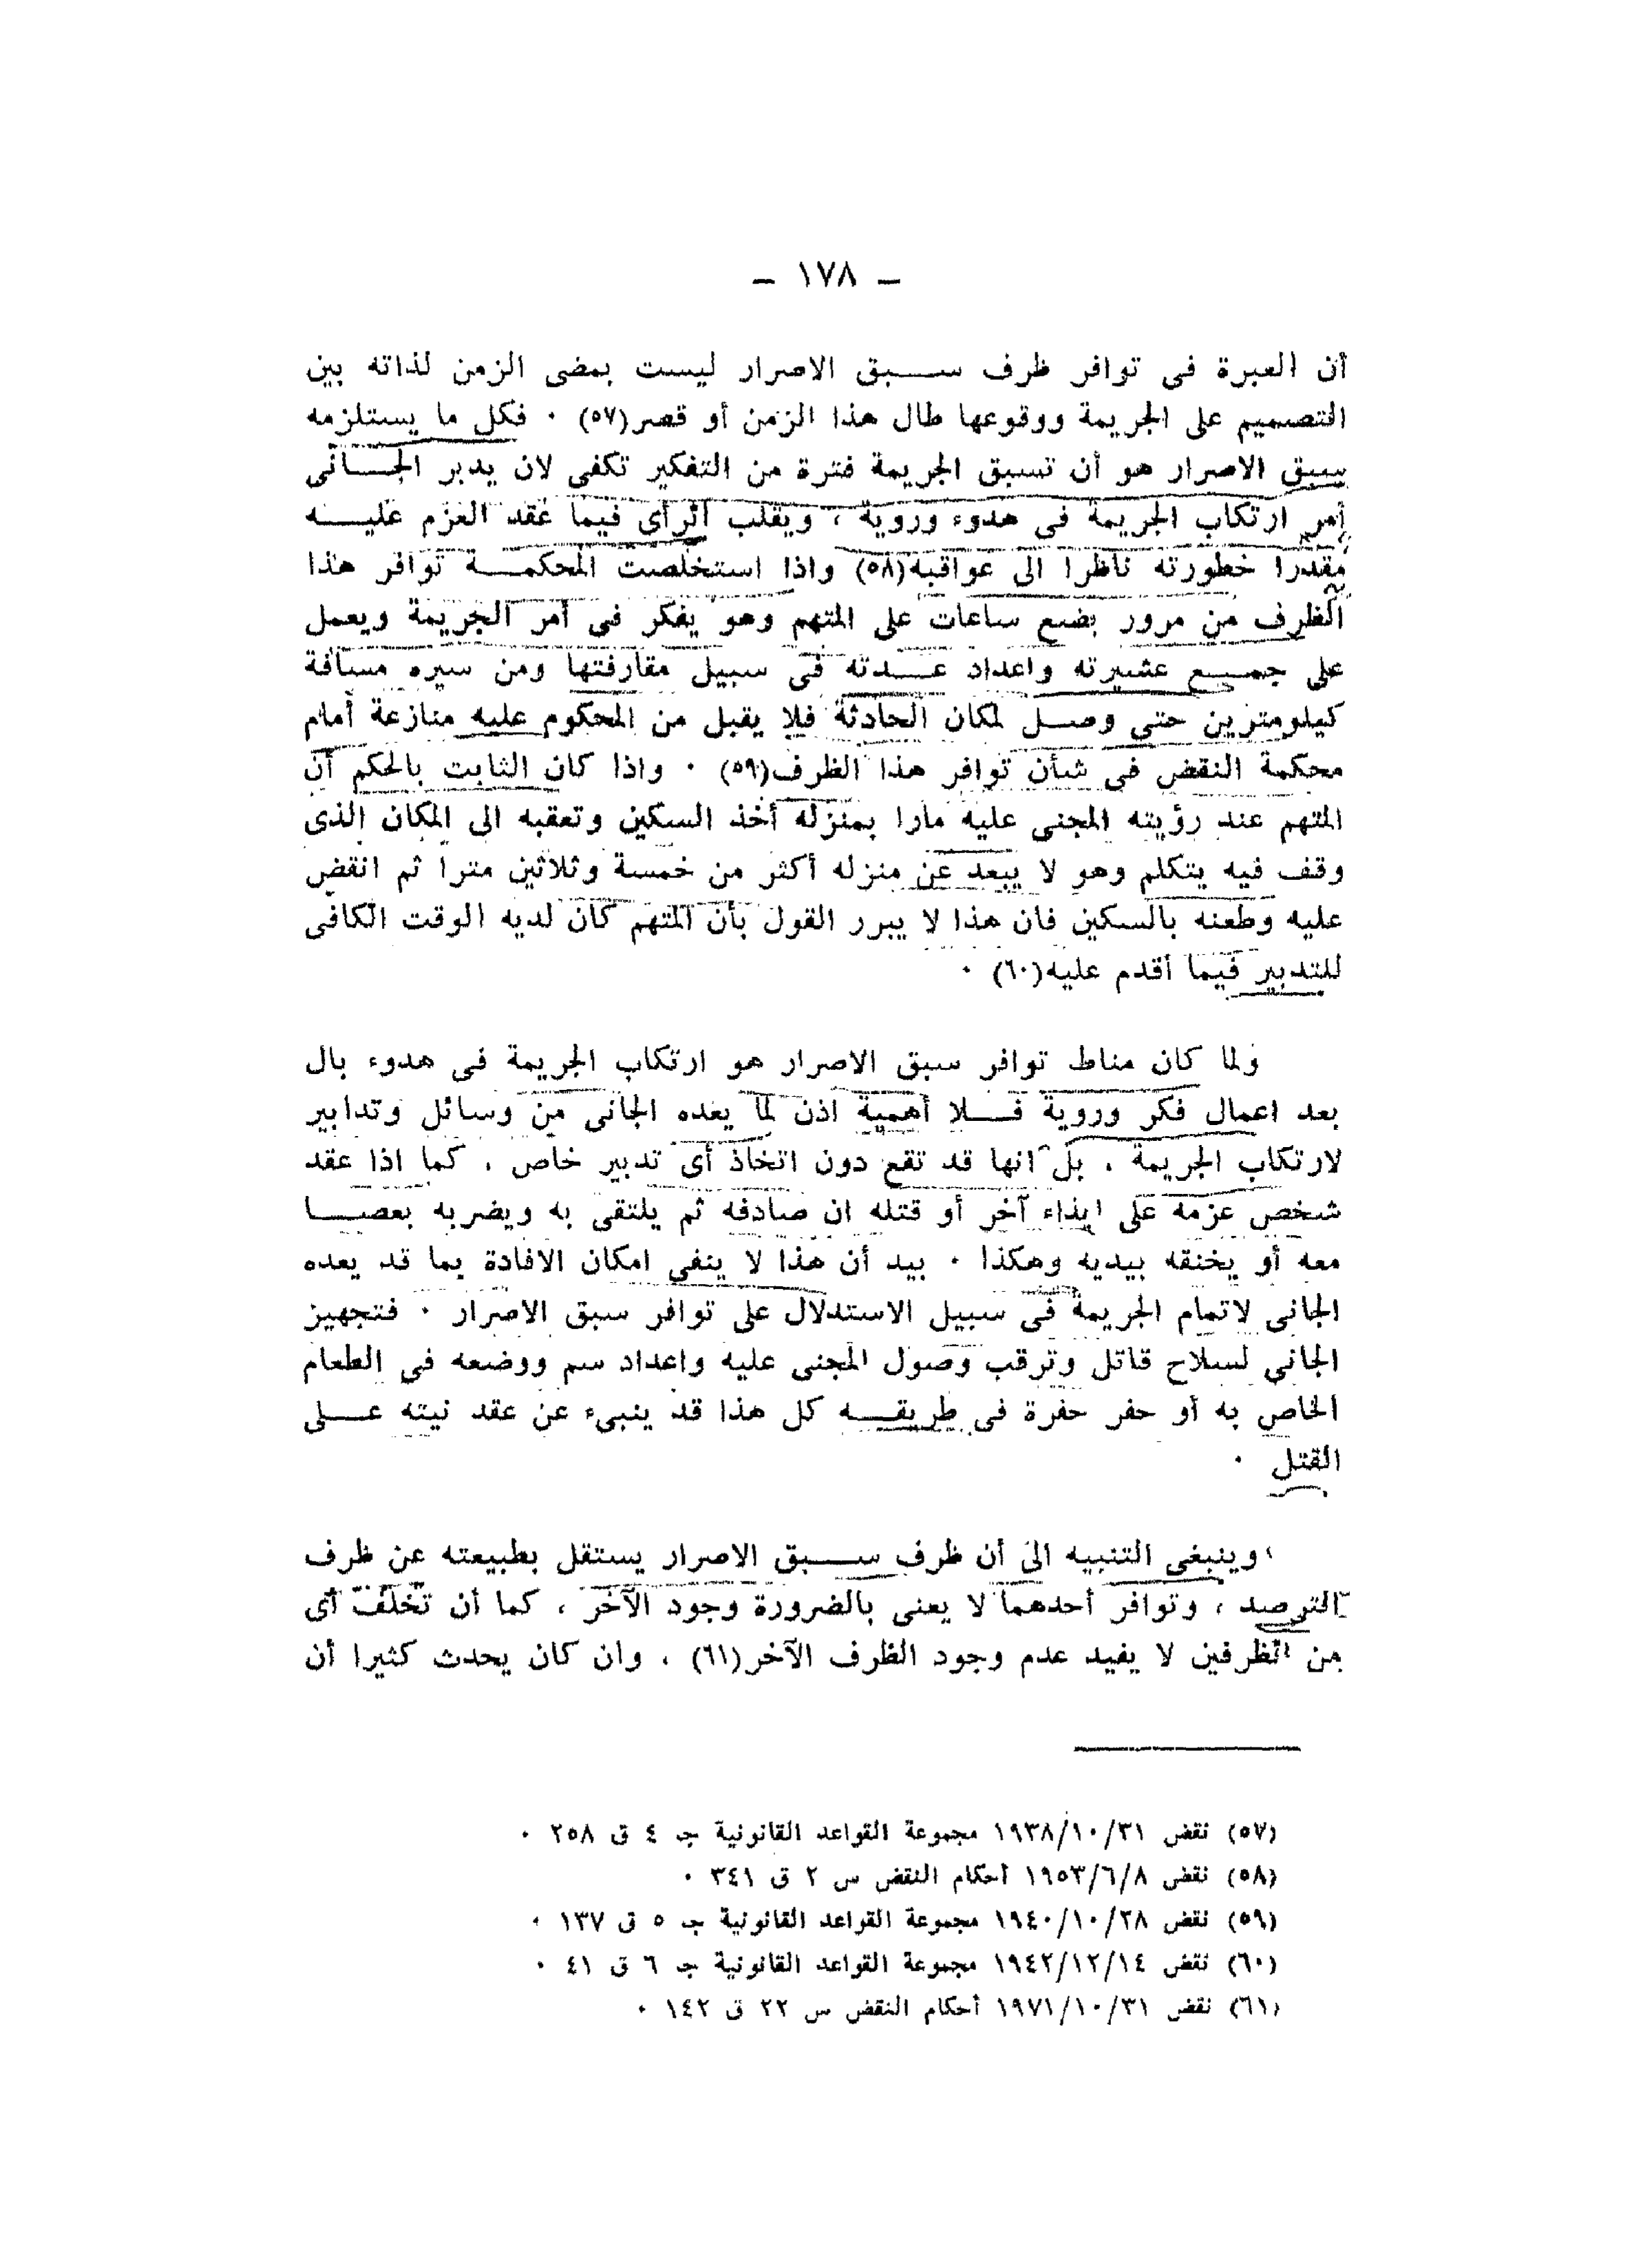 ـ ١٧٨ ـ
أن العبرة فى توافر ظرف ســبق الاصرار ليست بمضى الزمن لذاته بين
التصميم على الجريمة ووقوعها طال هذا الزمن أو قصر(٥٧) ٠ فكل ما يستلزمه
سبق الاصرار هو أن تسبق الجريمة فترة من التفكير تكفى لان يدبر الجــانى
أمر ارتكاب الجريمة فى هدوء وروية ، ويقلب الرأى فيما عقد العزم عليــه
مقدرا خطورته ناظرا الى عواقبه(٥٨) واذا استخلصت المحكمــة توافر هذا
الظرف من مرور بضع ساعات على المتهم وهو يفكر فى أمر الجريمة ويعمل
على جمــع عشيرته واعداد عــدته فى سبيل مقارفتها ومن سيره مسافة
كيلومترين حتى وصــل لمكان الحادثة فلا يقبل من المحكوم عليه منازعة أمام
محكمة النقض فى شأن توافر هذا الظرف(٥٩) ٠ واذا كان الثابت بالحكم أن
المتهم عند رؤيته المجنى عليه مارا بمنزله أخذ السكين وتعقبه الى المكان الذى
وقف فيه يتكلم وهو لا يبعد عن منزله أكثر من خمسة وثلاثين مترا ثم انقض
عليه وطعنه بالسكين فان هذا لا يبرر القول بأن المتهم كان لديه الوقت الكافى
للتدبير فيما أقدم عليه(٦٠) ٠
ولما كان مناط توافر سبق الاصرار هو ارتكاب الجريمة فى هدوء بال
بعد اعمال فكر وروية فــلا أهمية اذن لما يعده الجانى من وسائل وتدابير
لارتكاب الجريمة ، بل انها قد تقع دون اتخاذ أى تدبير خاص ، كما اذا عقد
شخص عزمه على ايذاء آخر أو قتله ان صادفه ثم يلتقى به ويضربه بعصــا
معه أو يخنقه بيديه وهكذا ٠ بيد أن هذا لا ينفى امكان الافادة بما قد يعده
الجانى لاتمام الجريمة فى سبيل الاستدلال على توافر سبق الاصرار ٠ فتجهيز
الجانى لسلاح قاتل وترقب وصول المجنى عليه واعداد سم ووضعه فى الطعام
الخاص به أو حفر حفرة فى طريقــه كل هذا قد ينبىء عن عقد نيته عــلى
القتل ٠
وينبغى التنبيه الى أن ظرف ســبق الاصرار يستقل بطبيعته عن ظرف
الترصد ، وتوافر أحدهما لا يعنى بالضرورة وجود الآخر ، كما أن تخلف أى
من الظرفين لا يفيد عدم وجود الظرف الآخر(٦١) ، وان كان يحدث كثيرا أن
(٥٧) نقض ١٩٣٨/١٠/٣١ مجموعة القواعد القانونية جـ ٤ ق ٢٥٨ ٠
(٥٨) نقض ١٩٥٣/٦/٨ أحكام النقض س ٢ ق ٣٤١ ٠
(٥٩) نقض ١٩٤٠/١٠/٢٨ مجموعة القواعد القانونية جـ ٥ ق ١٣٧ ٠
(٦٠) نقض ١٩٤٢/١٢/١٤ مجموعة القواعد القانونية جـ ٦ ق ٤١ ٠
(٦١) نقض ١٩٧١/١٠/٣١ أحكام النقض س ٢٢ ق ١٤٢ ٠